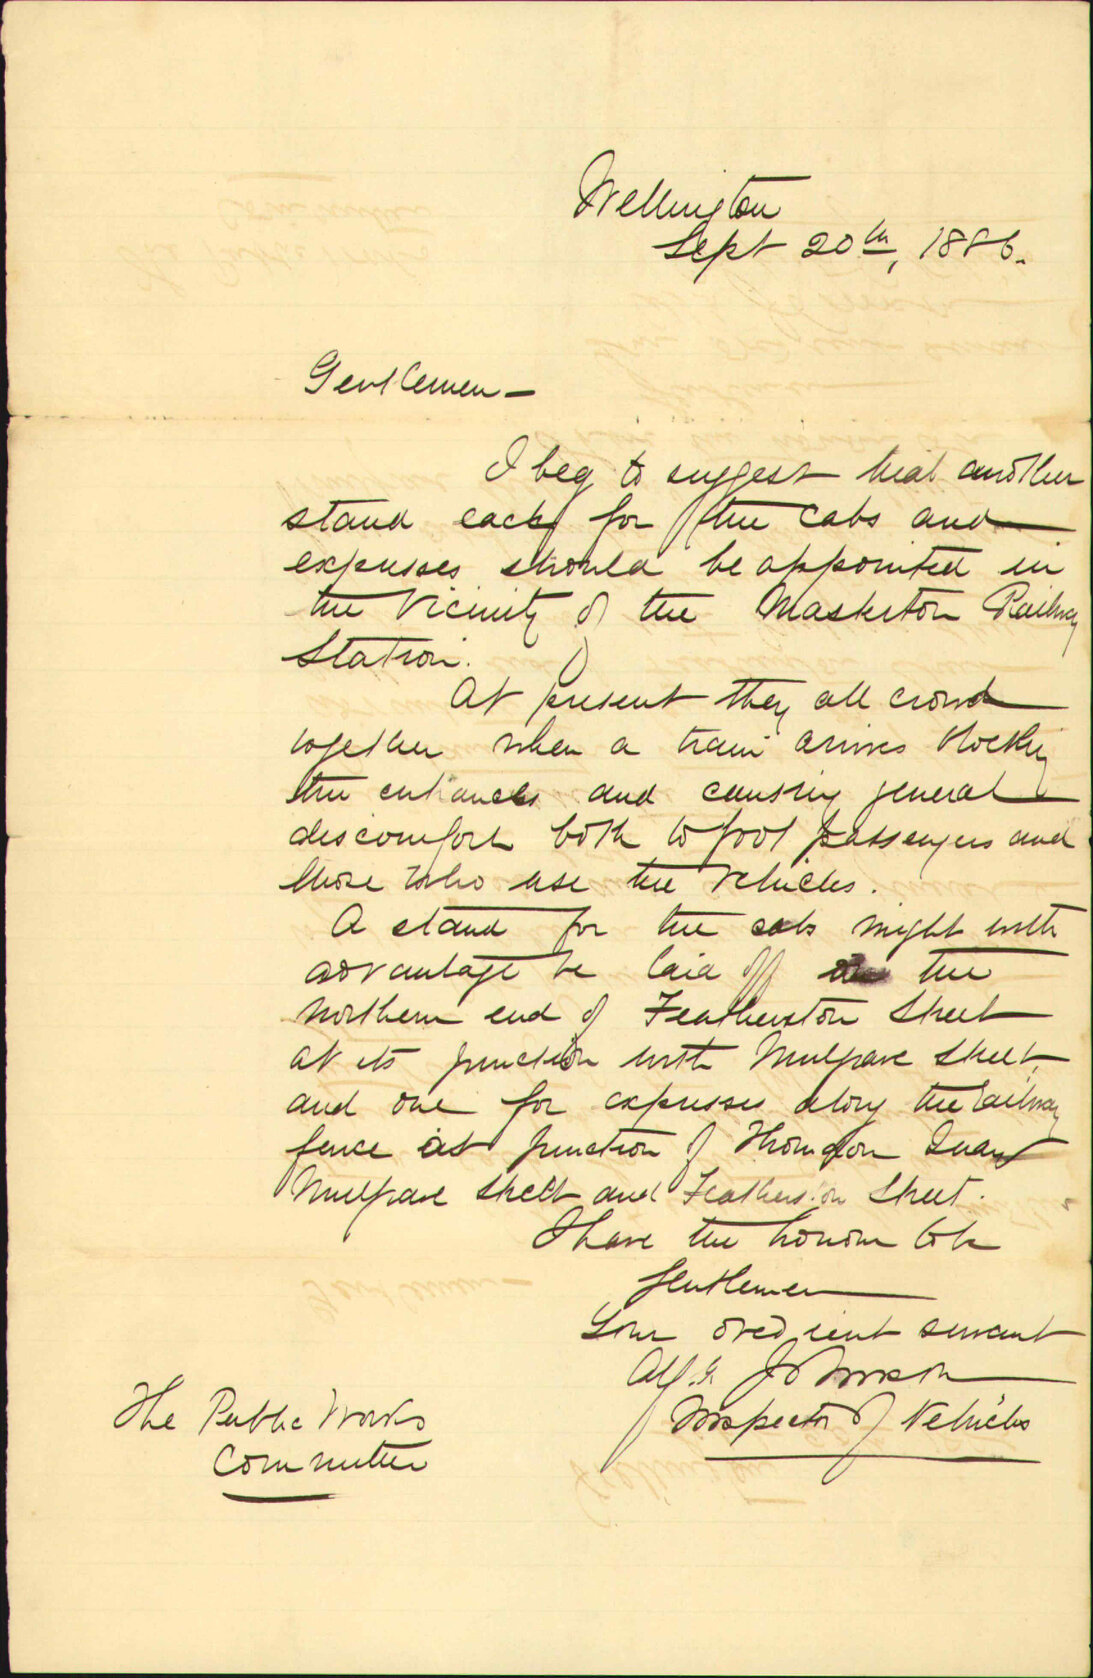 Wellington
Sept 20th, 1886.
Gentlemen —
I beg to suggest that another
stand each for the cabs and
expresses should be appointed in
the vicinity of the Masterton Railway
Station.
At present they all crowd
together when a train arrives blocking
the entrances and causing general
discomfort both to foot passengers and
those who use the vehicles.
A stand for the cabs might with
advantage be laid off on the
northern end of Featherston Street
at its junction with Mulgrave Street,
and one for expresses along the railway
fence at junction of Thorndon Quay
Mulgrave Street and Featherston Street.
I have the honour to be
Gentlemen
Your obedient servant
Alf. Johnson
Inspector of Vehicles
The Public Works
Committee